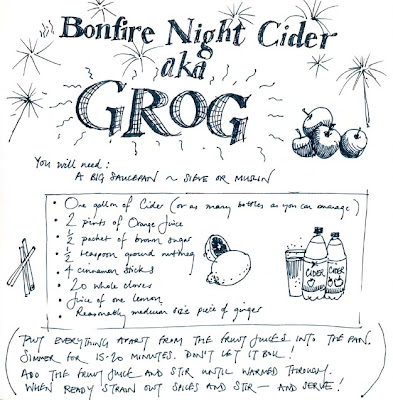 Bonfire Night Cider
aka
GROG
You will need:
A BIG SAUCEPAN ~ SIEVE OR MUSLIN
• One gallon of Cider (or as many bottles as you can manage)
• 2 pints of Orange Juice
• ½ packet of brown sugar
• ½ teaspoon ground nutmeg
• 4 cinnamon sticks
• 20 whole cloves
• Juice of one lemon
• Reasonably medium size piece of ginger
CIDER
CIDER
PUT EVERYTHING APART FROM THE FRUIT JUICES INTO THE PAN.
SIMMER FOR 15-20 MINUTES. DON'T LET IT BOIL!
ADD THE FRUIT JUICE AND STIR UNTIL WARMED THROUGH.
WHEN READY STRAIN OUT SPICES AND STIR – AND SERVE!